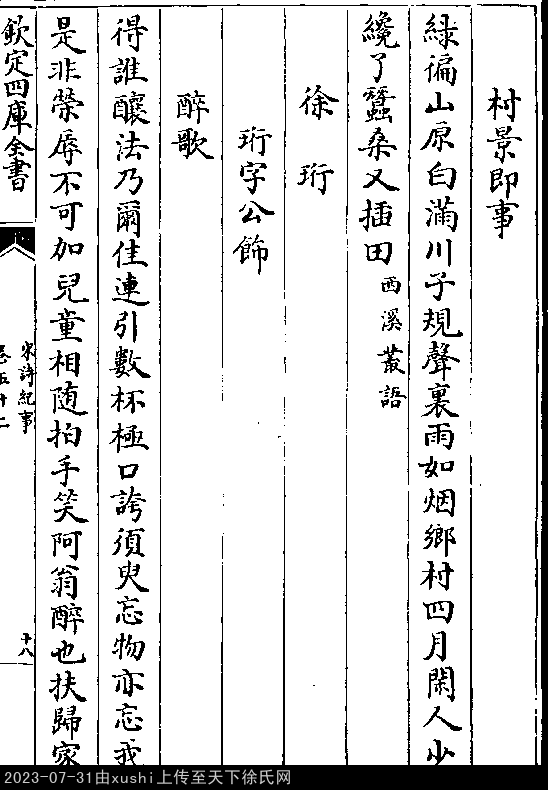 村景即事
緑徧山原白滿川子規聲裏雨如烟鄉村四月閑人少
纔了蠶桑又插田西溪叢語
徐珩
珩字公飾
醉歌
得誰釀法乃爾佳連引數杯極口誇須臾忘物亦忘我
是非榮辱不可加兒童相随拍手笑阿翁醉也扶歸家
欽定四庫全書
宋詩紀事
卷五十二
十八
2023-07-31由xushi上传至天下徐氏网